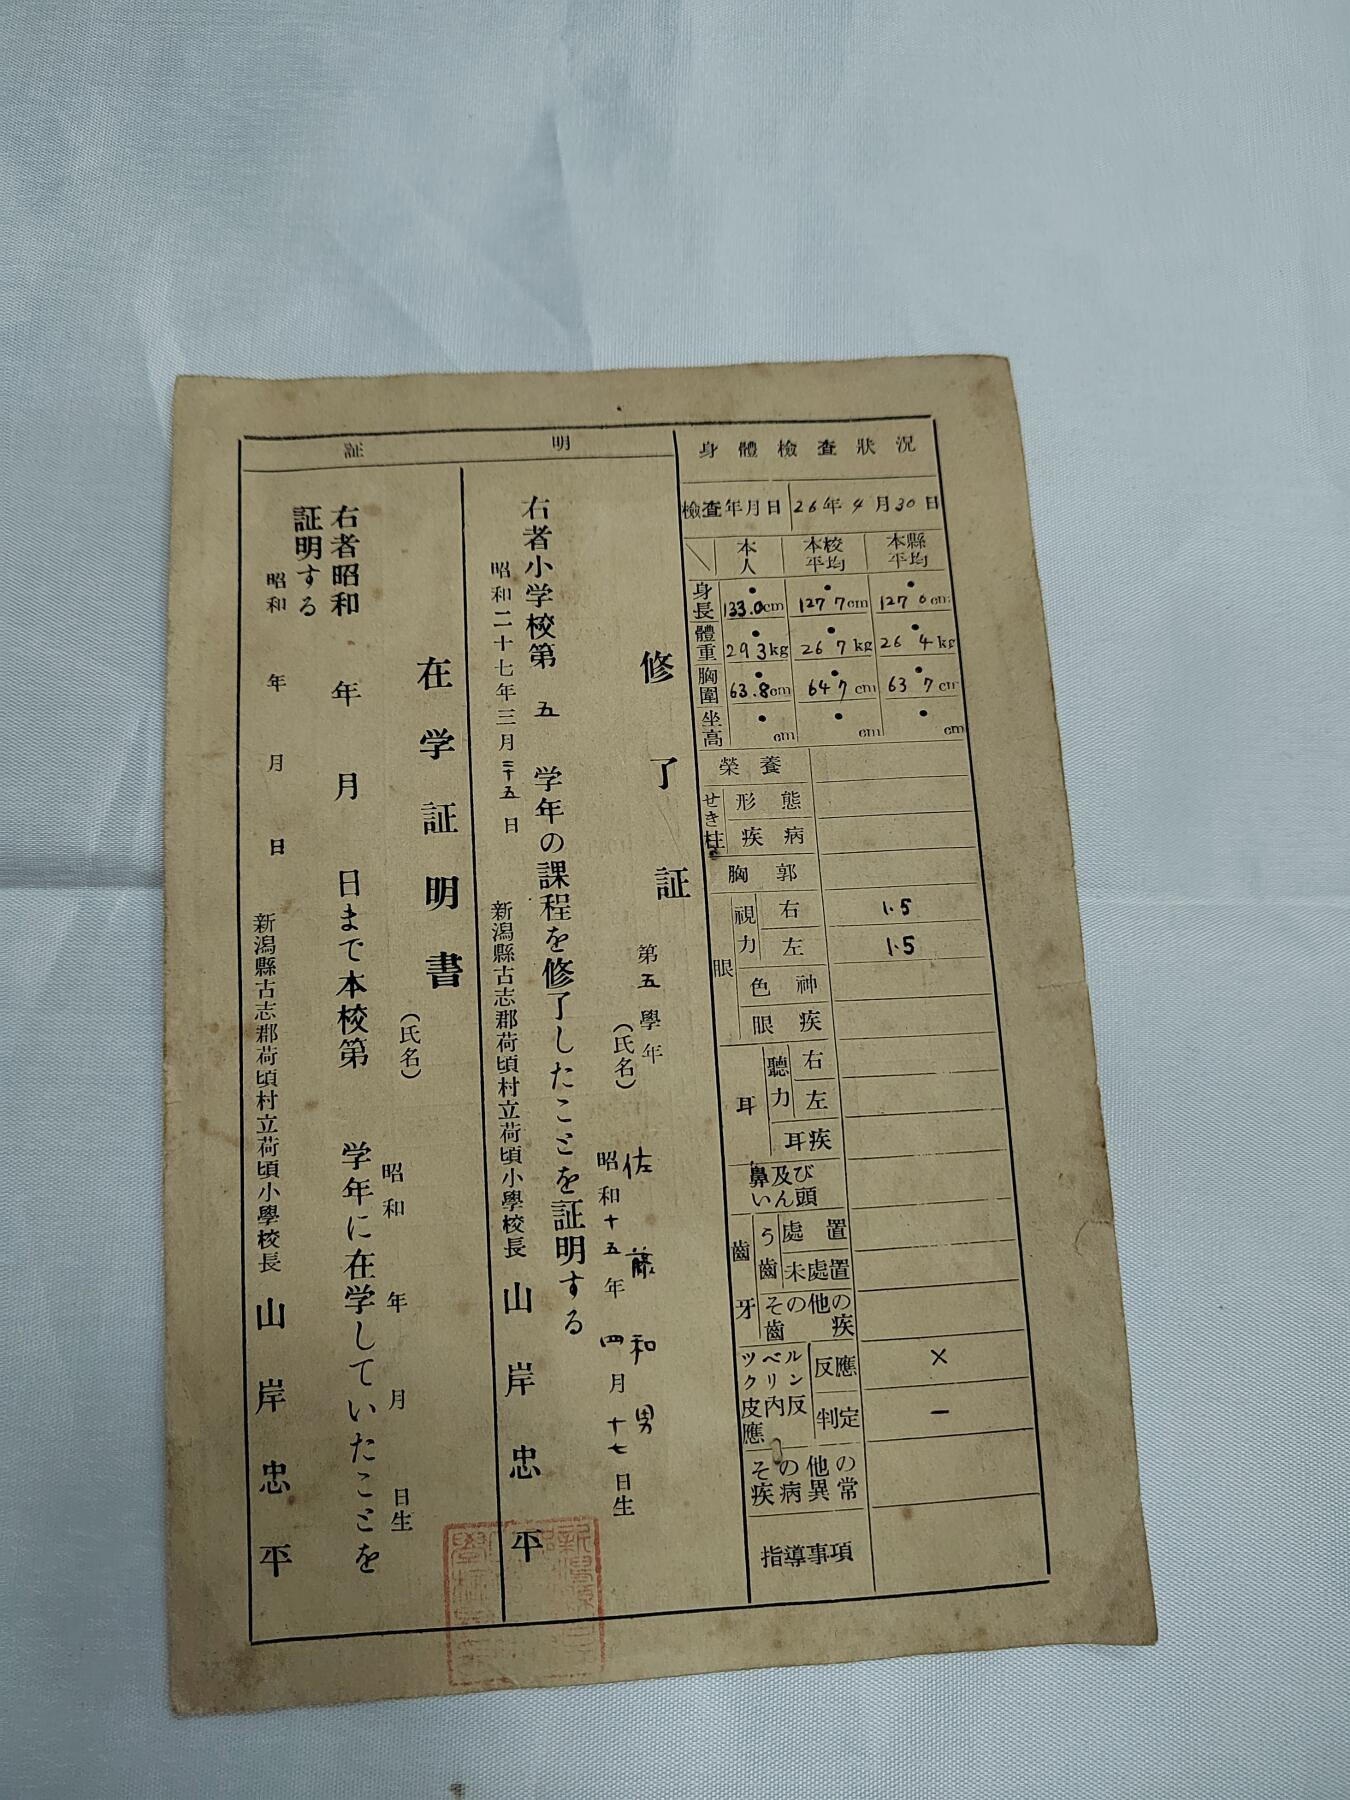 身體檢査狀況
檢査年月日 26年4月30日
本人 本校平均 本縣平均
身長 133.0cm 127.7cm 127.0cm
體重 29.3kg 26.7kg 26.4kg
胸圍 63.8cm 64.7cm 63.7cm
坐高 .cm .cm .cm
榮養
せき柱 形態
疾病
胸郭
眼 視力 右 1.5
左 1.5
色神
眼疾
耳 聽力 右
左
耳疾
鼻及びいん頭
齒牙 う齒 處置
未處置
その他の齒疾
ツベルクリン皮內反應 反應 ×
判定 −
その他の疾病異常
指導事項
証明
修了証
第五學年
(氏名) 佐藤和男
昭和十五年四月十七日生
右者小学校第五学年の課程を修了したことを証明する
昭和二十七年三月二十五日
新潟縣古志郡荷頃村立荷頃小學校長 山岸忠平
在学証明書
(氏名)
昭和 年 月 日生
右者昭和 年 月 日まで本校第 学年に在学していたことを
証明する
昭和 年 月 日
新潟縣古志郡荷頃村立荷頃小學校長 山岸忠平